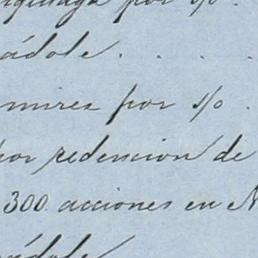 por s/o
ádole . . . .
mires por s/o .
por redencion de
300 acciones en N
ádole